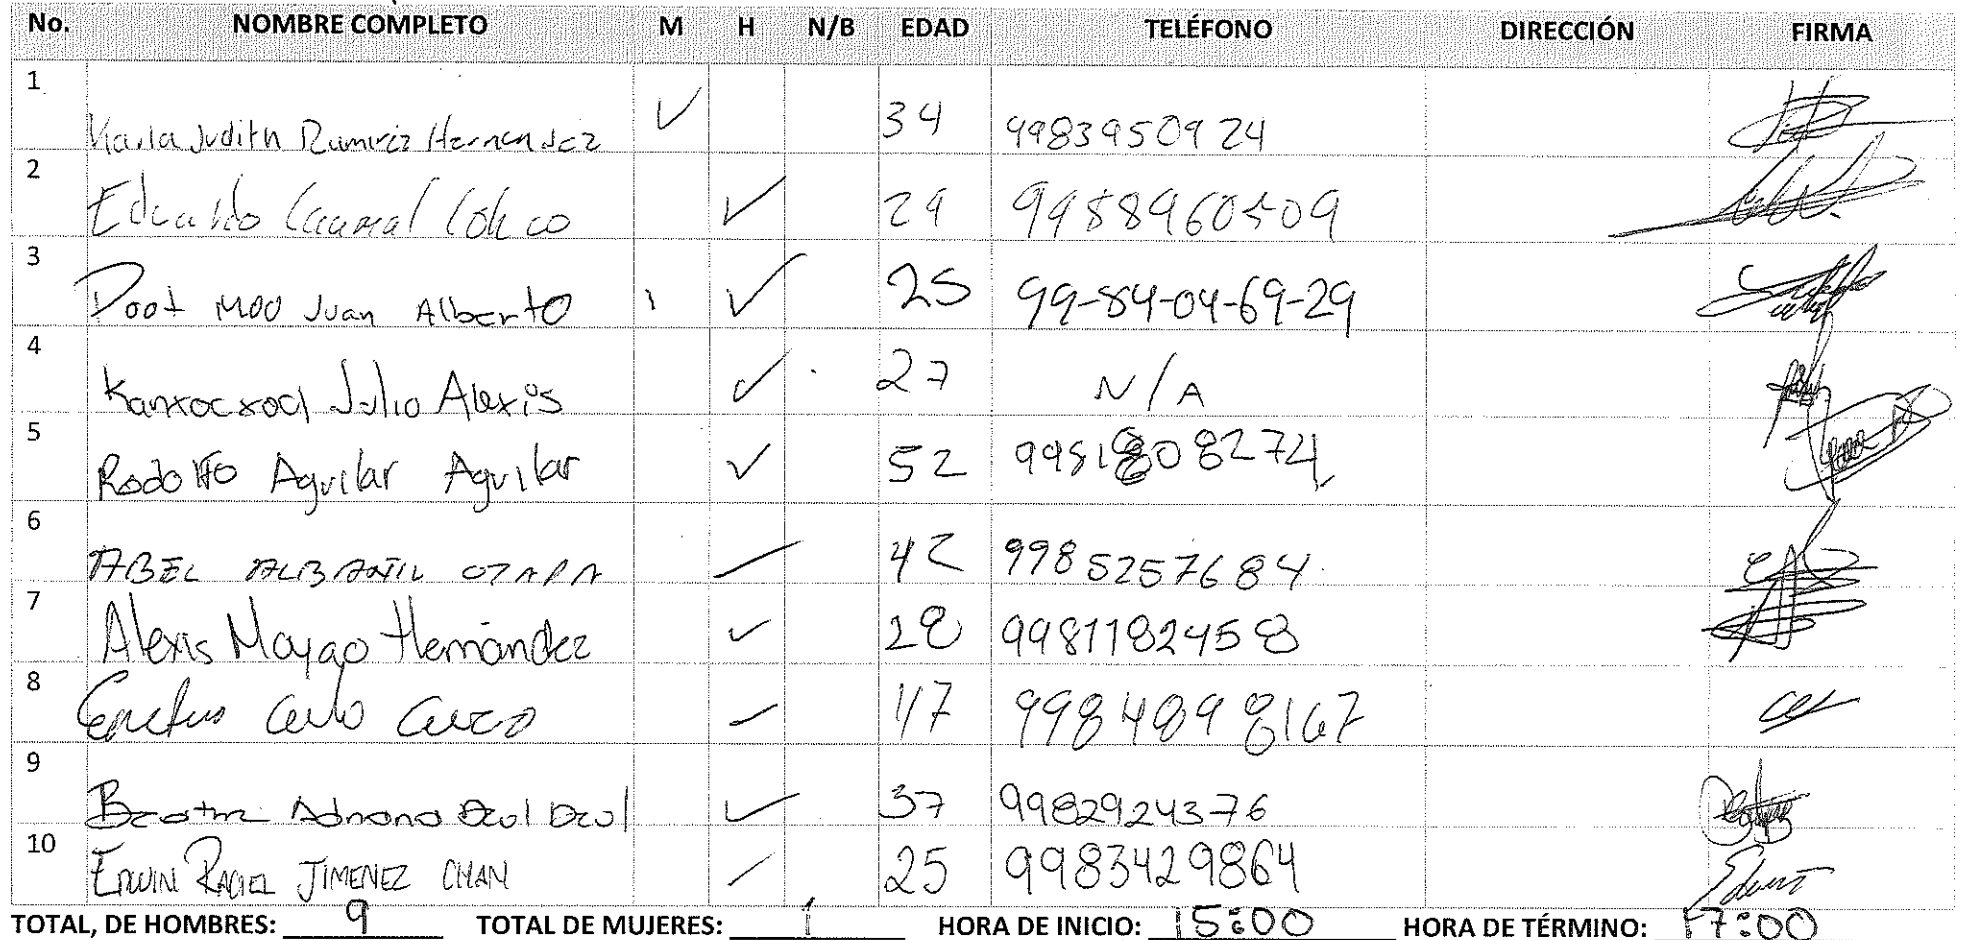 No. NOMBRE COMPLETO M H N/B EDAD TELÉFONO DIRECCIÓN FIRMA
1 Karla Judith Ramirez Hernandez ✓ 34 9983950924
2 Eduardo Caamal ✓ 29 9988960509
3 Poot Moo Juan Alberto ✓ 25 99-84-04-69-29
4 Kanxocxocl Julio Alexis ✓ 27 N/A
5 Rodolfo Aguilar Aguilar ✓ 52 9981808274
6 ABEL 42 9985257684
7 Alexis Mayao Hernández ✓ 28 9981182458
8 47 9984898167
9 Adriana Dzul Dzul ✓ 37 9982924376
10 ERWIN JIMENEZ CHAN 25 9983429864
TOTAL, DE HOMBRES: 9 TOTAL DE MUJERES: 1 HORA DE INICIO: 15:00 HORA DE TÉRMINO: 17:00